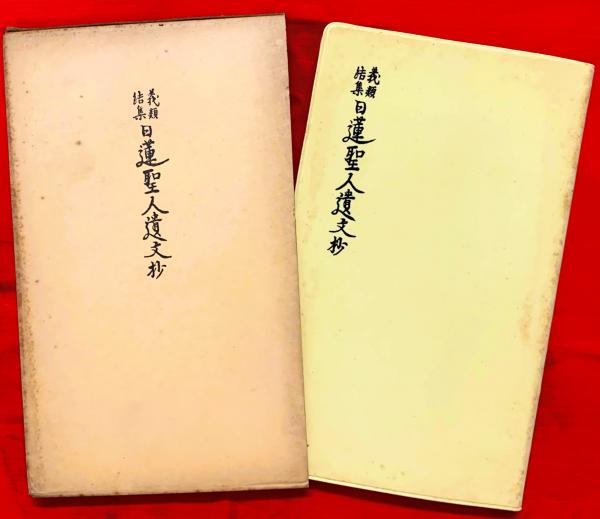 義類
結集
日蓮聖人遺文抄
義類
結集
日蓮聖人遺文抄